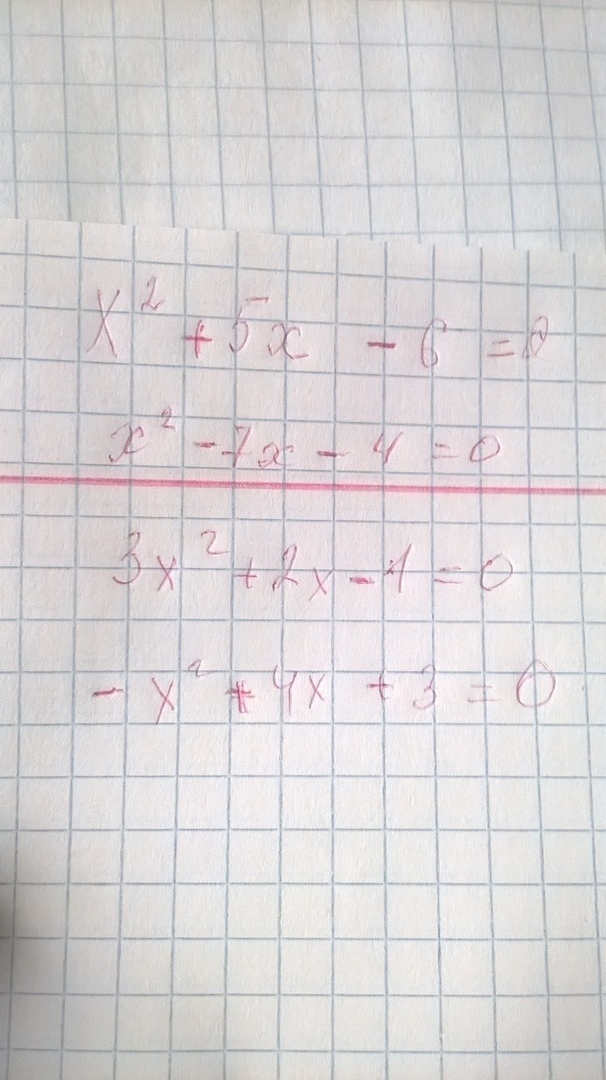 x² + 5x - 6 = 0
x² - 7x - 4 = 0
3x² + 2x - 1 = 0
- x² + 4x + 3 = 0